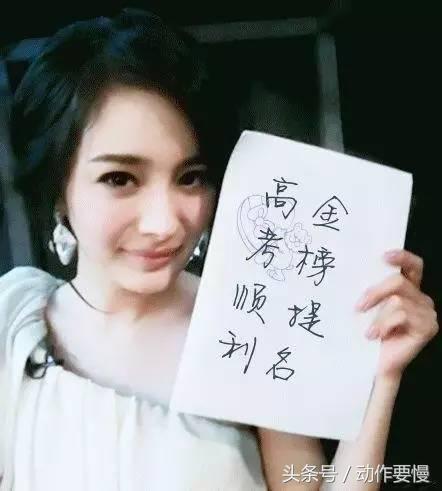 高考顺利
金榜提名
头条号／动作要慢